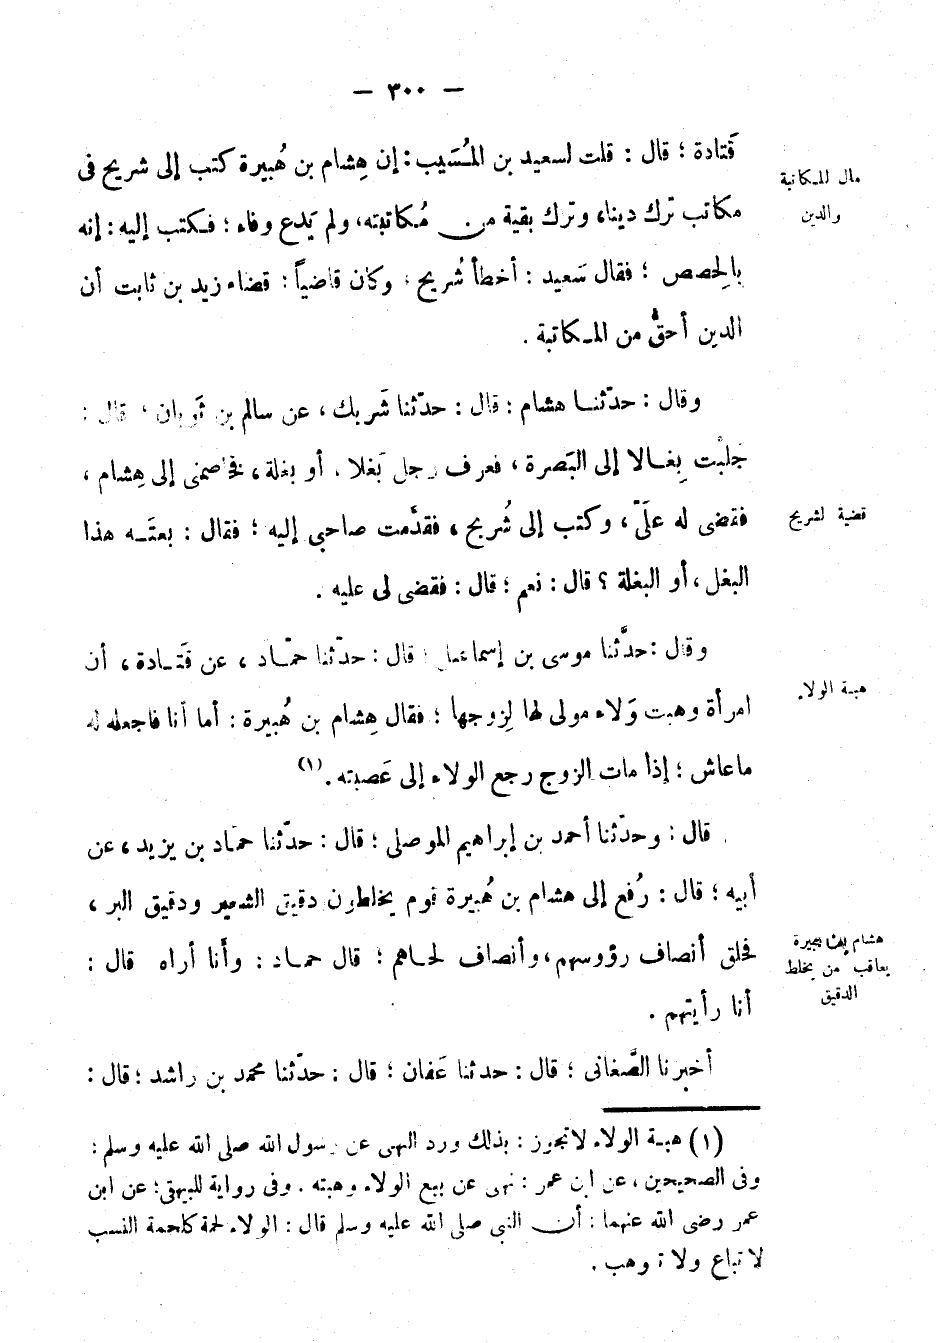 — ٣٠٠ —
قَتادة ؛ قال : قلت لسعيد بن المُسَيب : إن هِشام بن هُبيرة كتب إلى شريح فى
مال المكاتبة
والدين
مكاتب ترك دينا، وترك بقية من مُكاتبته، ولم يَدع وفاء ؛ فكتب إليه : إنه
بالِحصص ؛ فقال سَعيد : أخطأ شُريح ، وكان قاضياً : قضاء زيد بن ثابت أن
الدين أحقُّ من المكاتبة .
وقال : حدّثنا هشام ؛ قال : حدّثنا شَريك ، عن سالم بن ثَوبان ، قال :
جَلبْت بِغالا إلى البَصرة ، فعرف رجل بَغلا ، أو بغلة ، فخاصمنى إلى هِشام ،
فقضى له علَىّ ، وكتب إلى شُريح ، فقدَّمت صاحبى إليه ؛ فقال : بعتَه هذا
قضية لشريح
البغل ، أو البغلة ؟ قال : نعم ؛ قال : فقضى لى عليه .
وقال : حدَّثنا موسى بن إسماعيل ؛ قال : حدّثنا حمّاد ، عن قَتادة ، أن
هبة الولاء
امرأة وهبت وَلاء مولى لها لِزوجها ؛ فقال هِشام بن هُبيرة : أما أنا فاجعله له
ماعاش ؛ إذا مات الزوج رجع الولاء إلى عَصبته . (١)
قال : وحدّثنا أحمد بن إبراهيم الموصلى ؛ قال : حدّثنا حمّاد بن يزيد ، عن
أبيه ؛ قال : رُفع إلى هشام بن هُبيرة قوم يخلطون دقيق الشعير ودقيق البر ،
فحلق أنصاف رؤوسهم ، وأنصاف لحاهم ؛ قال حماد : وأنا أراه قال :
هشام بن هبيرة
يعاقب من يخلط
الدقيق
أنا رأيتهم .
أخبرنا الصَّغانى ؛ قال : حدثنا عَفان ؛ قال : حدّثنا محمد بن راشد ؛ قال :
(١) هبة الولاء لا تجوز : بذلك ورد النهى عن رسول الله صلى الله عليه وسلم :
وفى الصحيحين ، عن ابن عمر : نهى عن بيع الولاء وهبته . وفى رواية للبيهقى ؛ عن ابن
عمر رضى الله عنهما : أن النبى صلى الله عليه وسلم قال : الولاء لحمة كلحمة النسب
لا تباع ولا توهب .